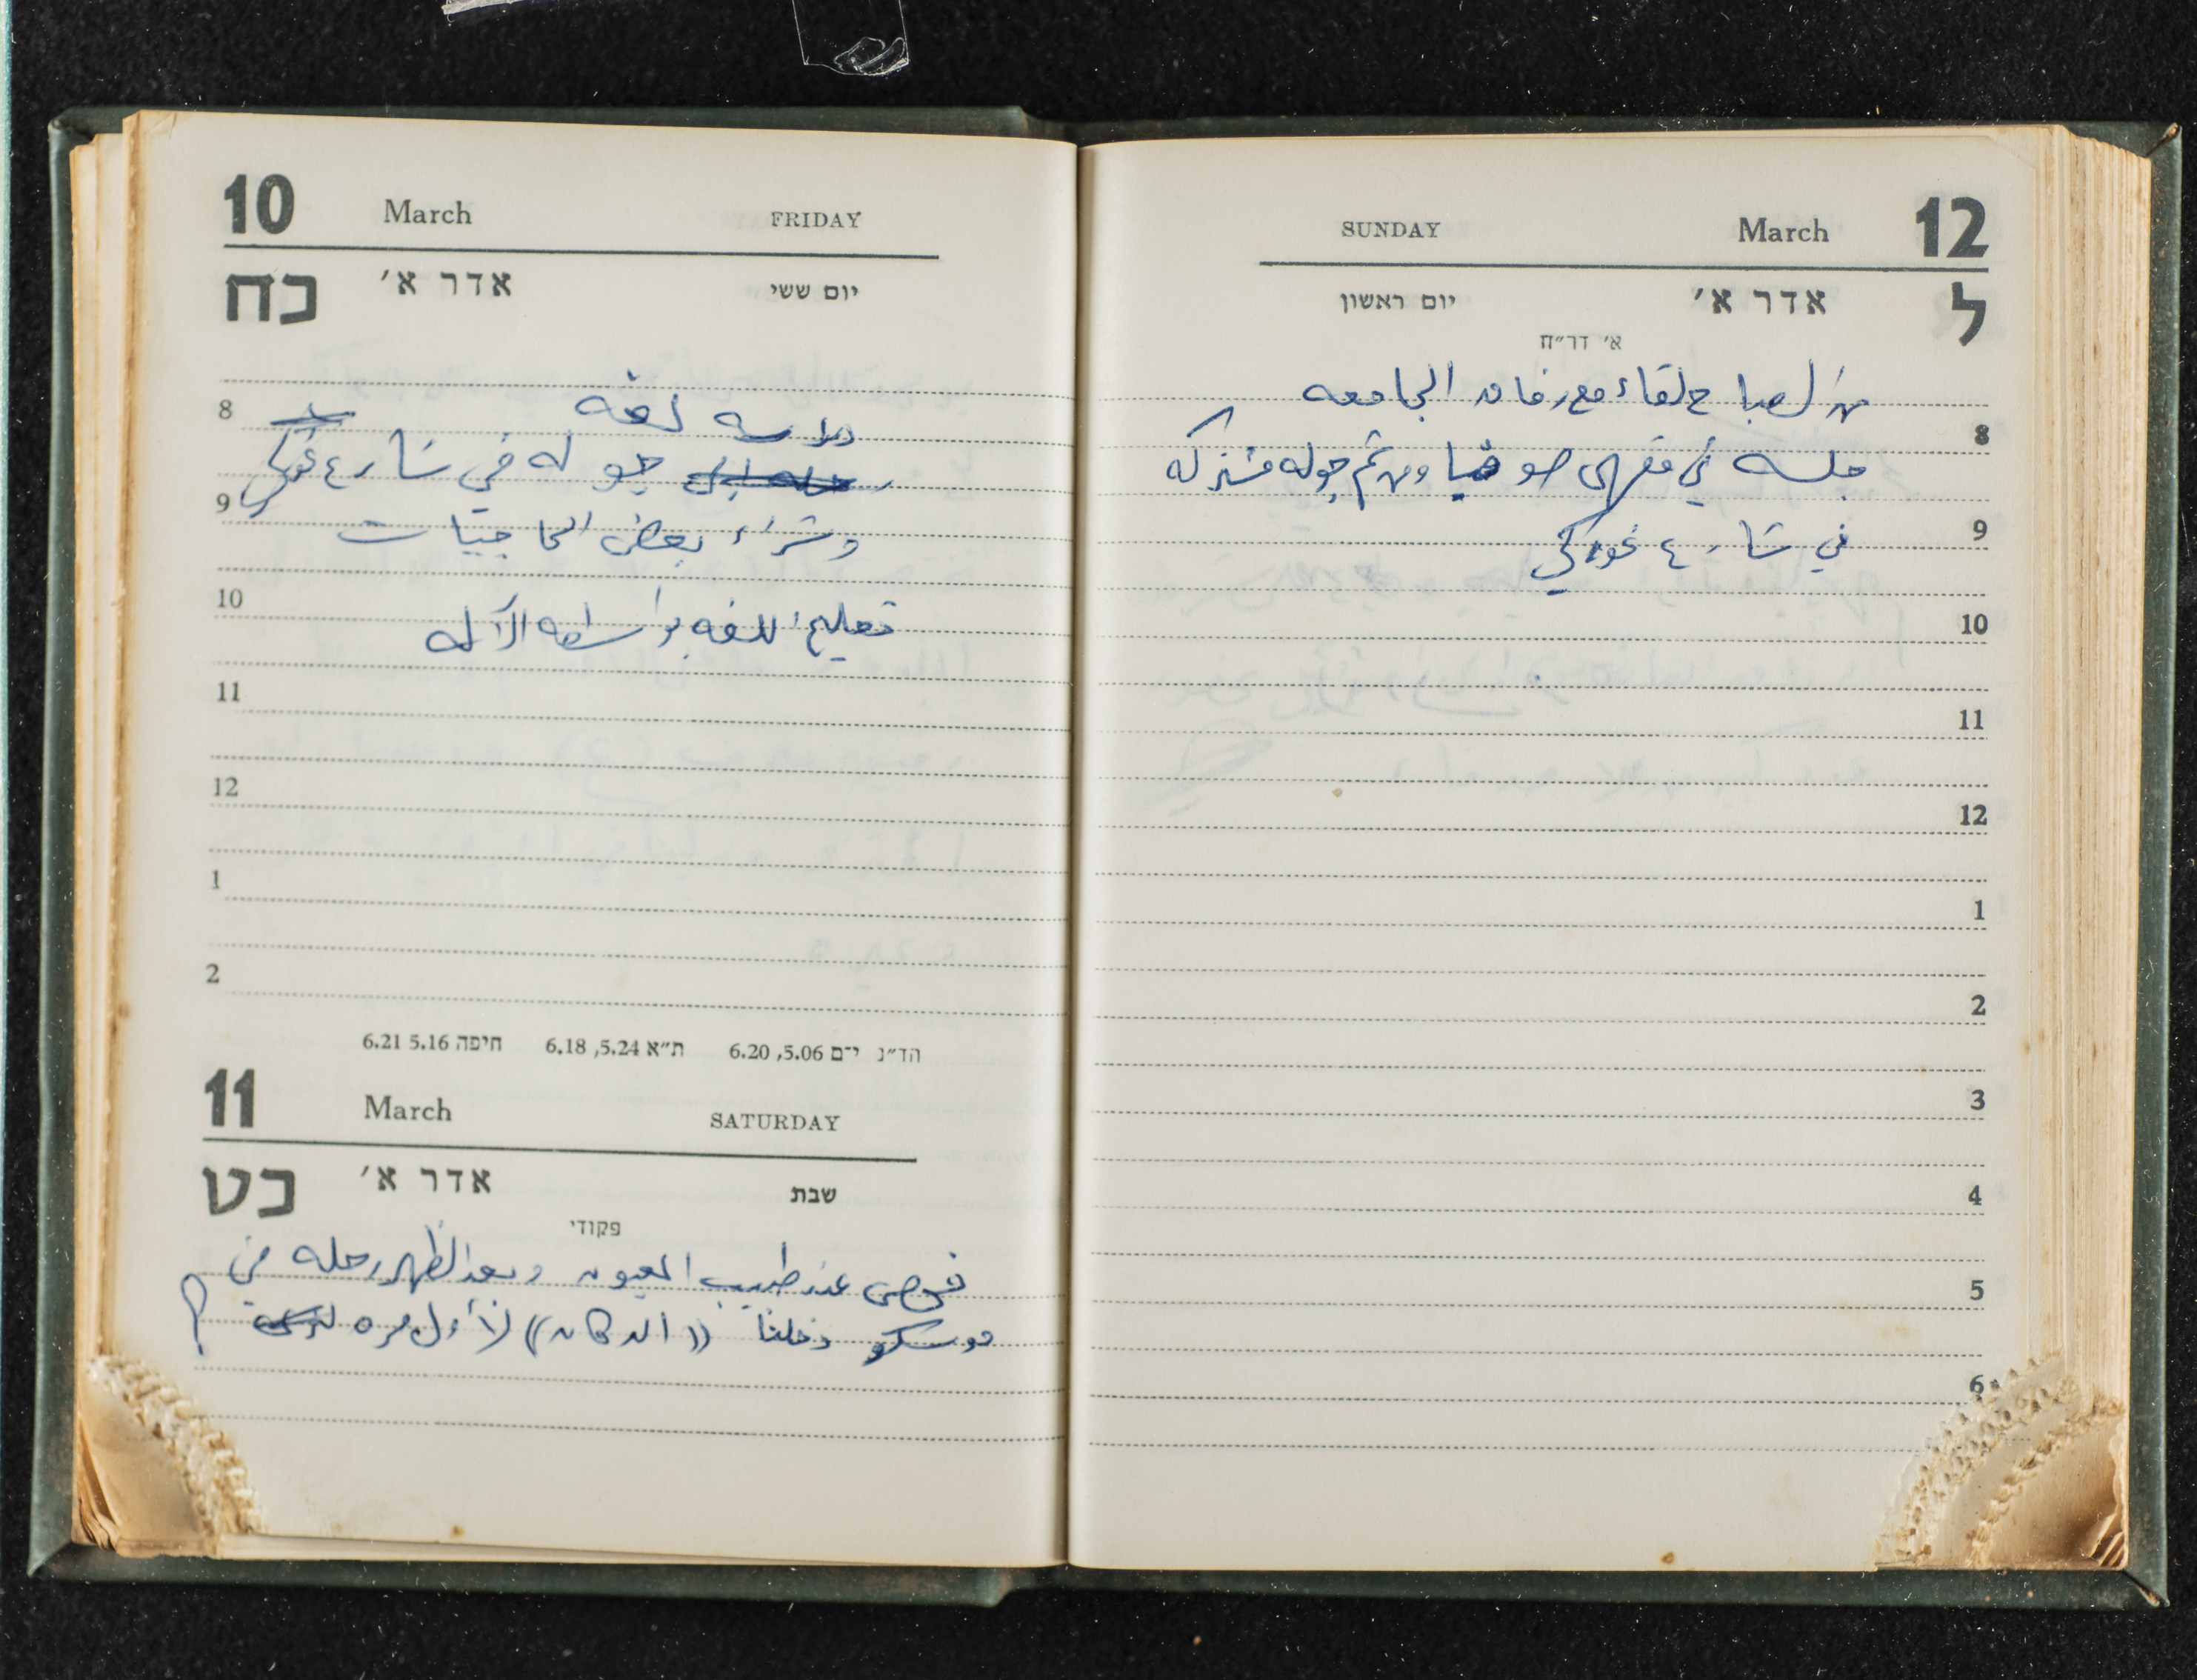 10 March FRIDAY
כח אדר א׳ יום ששי
8
دراسة لغه
جوله في شارع غوركي
9
وشراء بعض الحاجيات
10
تعليم اللغه بواسطه الآله
11
12
1
2
הד״נ י־ם 5.06, 6.20 ת״א 5.24, 6.18 חיפה 5.16 6.21
11 March SATURDAY
כט אדר א׳ שבת
פקודי
فحص عند طبيب العيون وبعد الظهر رحله في
موسكو دخلنا ((الدكان)) لأول مره
SUNDAY March 12
ל אדר א׳ יום ראשון
א׳ דר״ח
من الصباح لقاء مع رفاق الجامعه
8
جلسه في مقهى صوفيا ومن ثم جوله مشتركه
9
في شارع غوركي
10
11
12
1
2
3
4
5
6